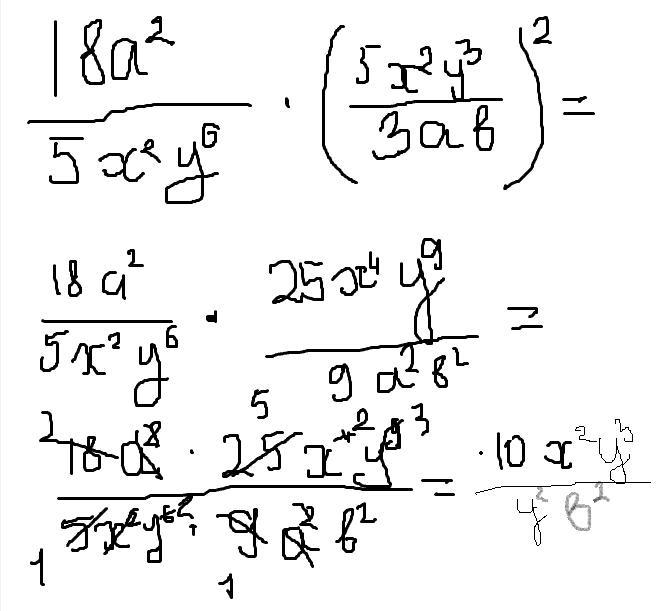 18a² / 5x²y⁶ · (5x²y³ / 3ab)² =
18a² / 5x²y⁶ · 25x⁴y⁹ / 9a²b² =
2 5
18a² · 25x⁴y⁹ 2 3 / 5x²y⁶ 2 · 9a²b² = · 10x²y³ / y²b²
1 1